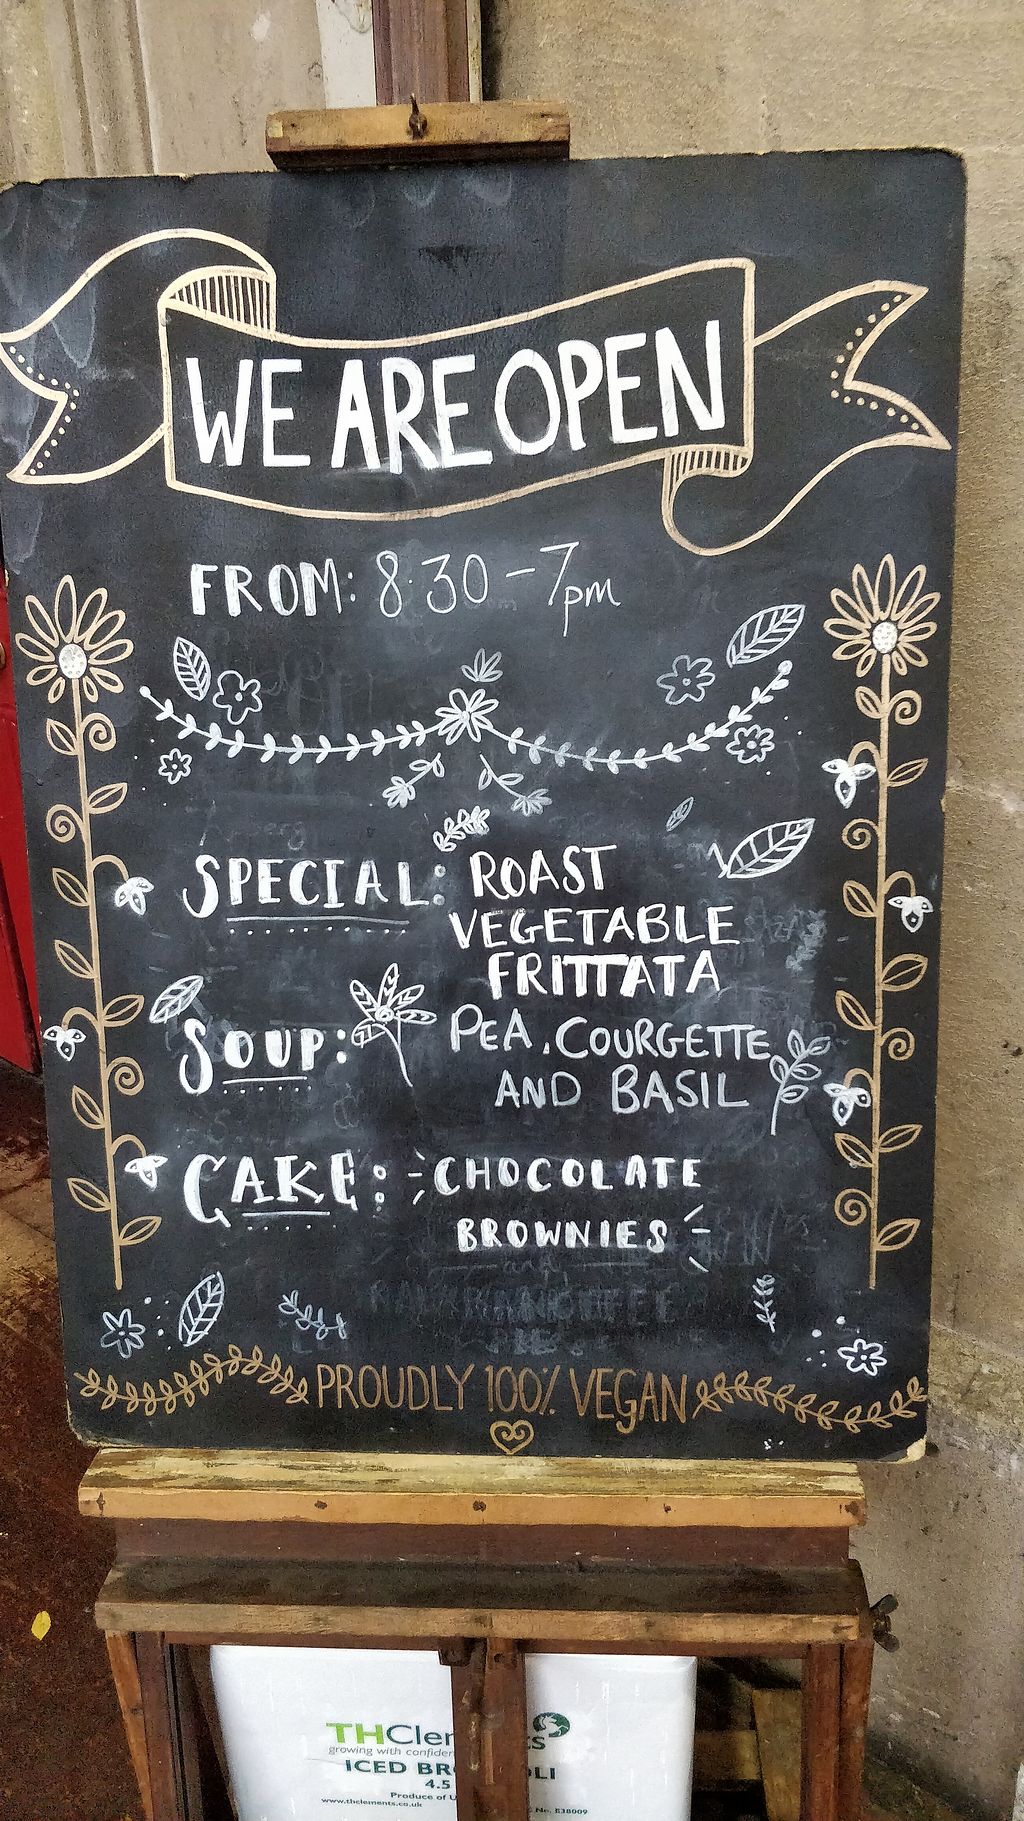 WE ARE OPEN
FROM: 8.30 - 7pm
SPECIAL: ROAST
VEGETABLE
FRITTATA
SOUP: PEA, COURGETTE
AND BASIL
CAKE: CHOCOLATE
BROWNIES
and
PROUDLY 100% VEGAN
THClements
growing with confiden
ICED BRO OLI
4.5
Produce of U
www.thclements.co.uk
No. E38009